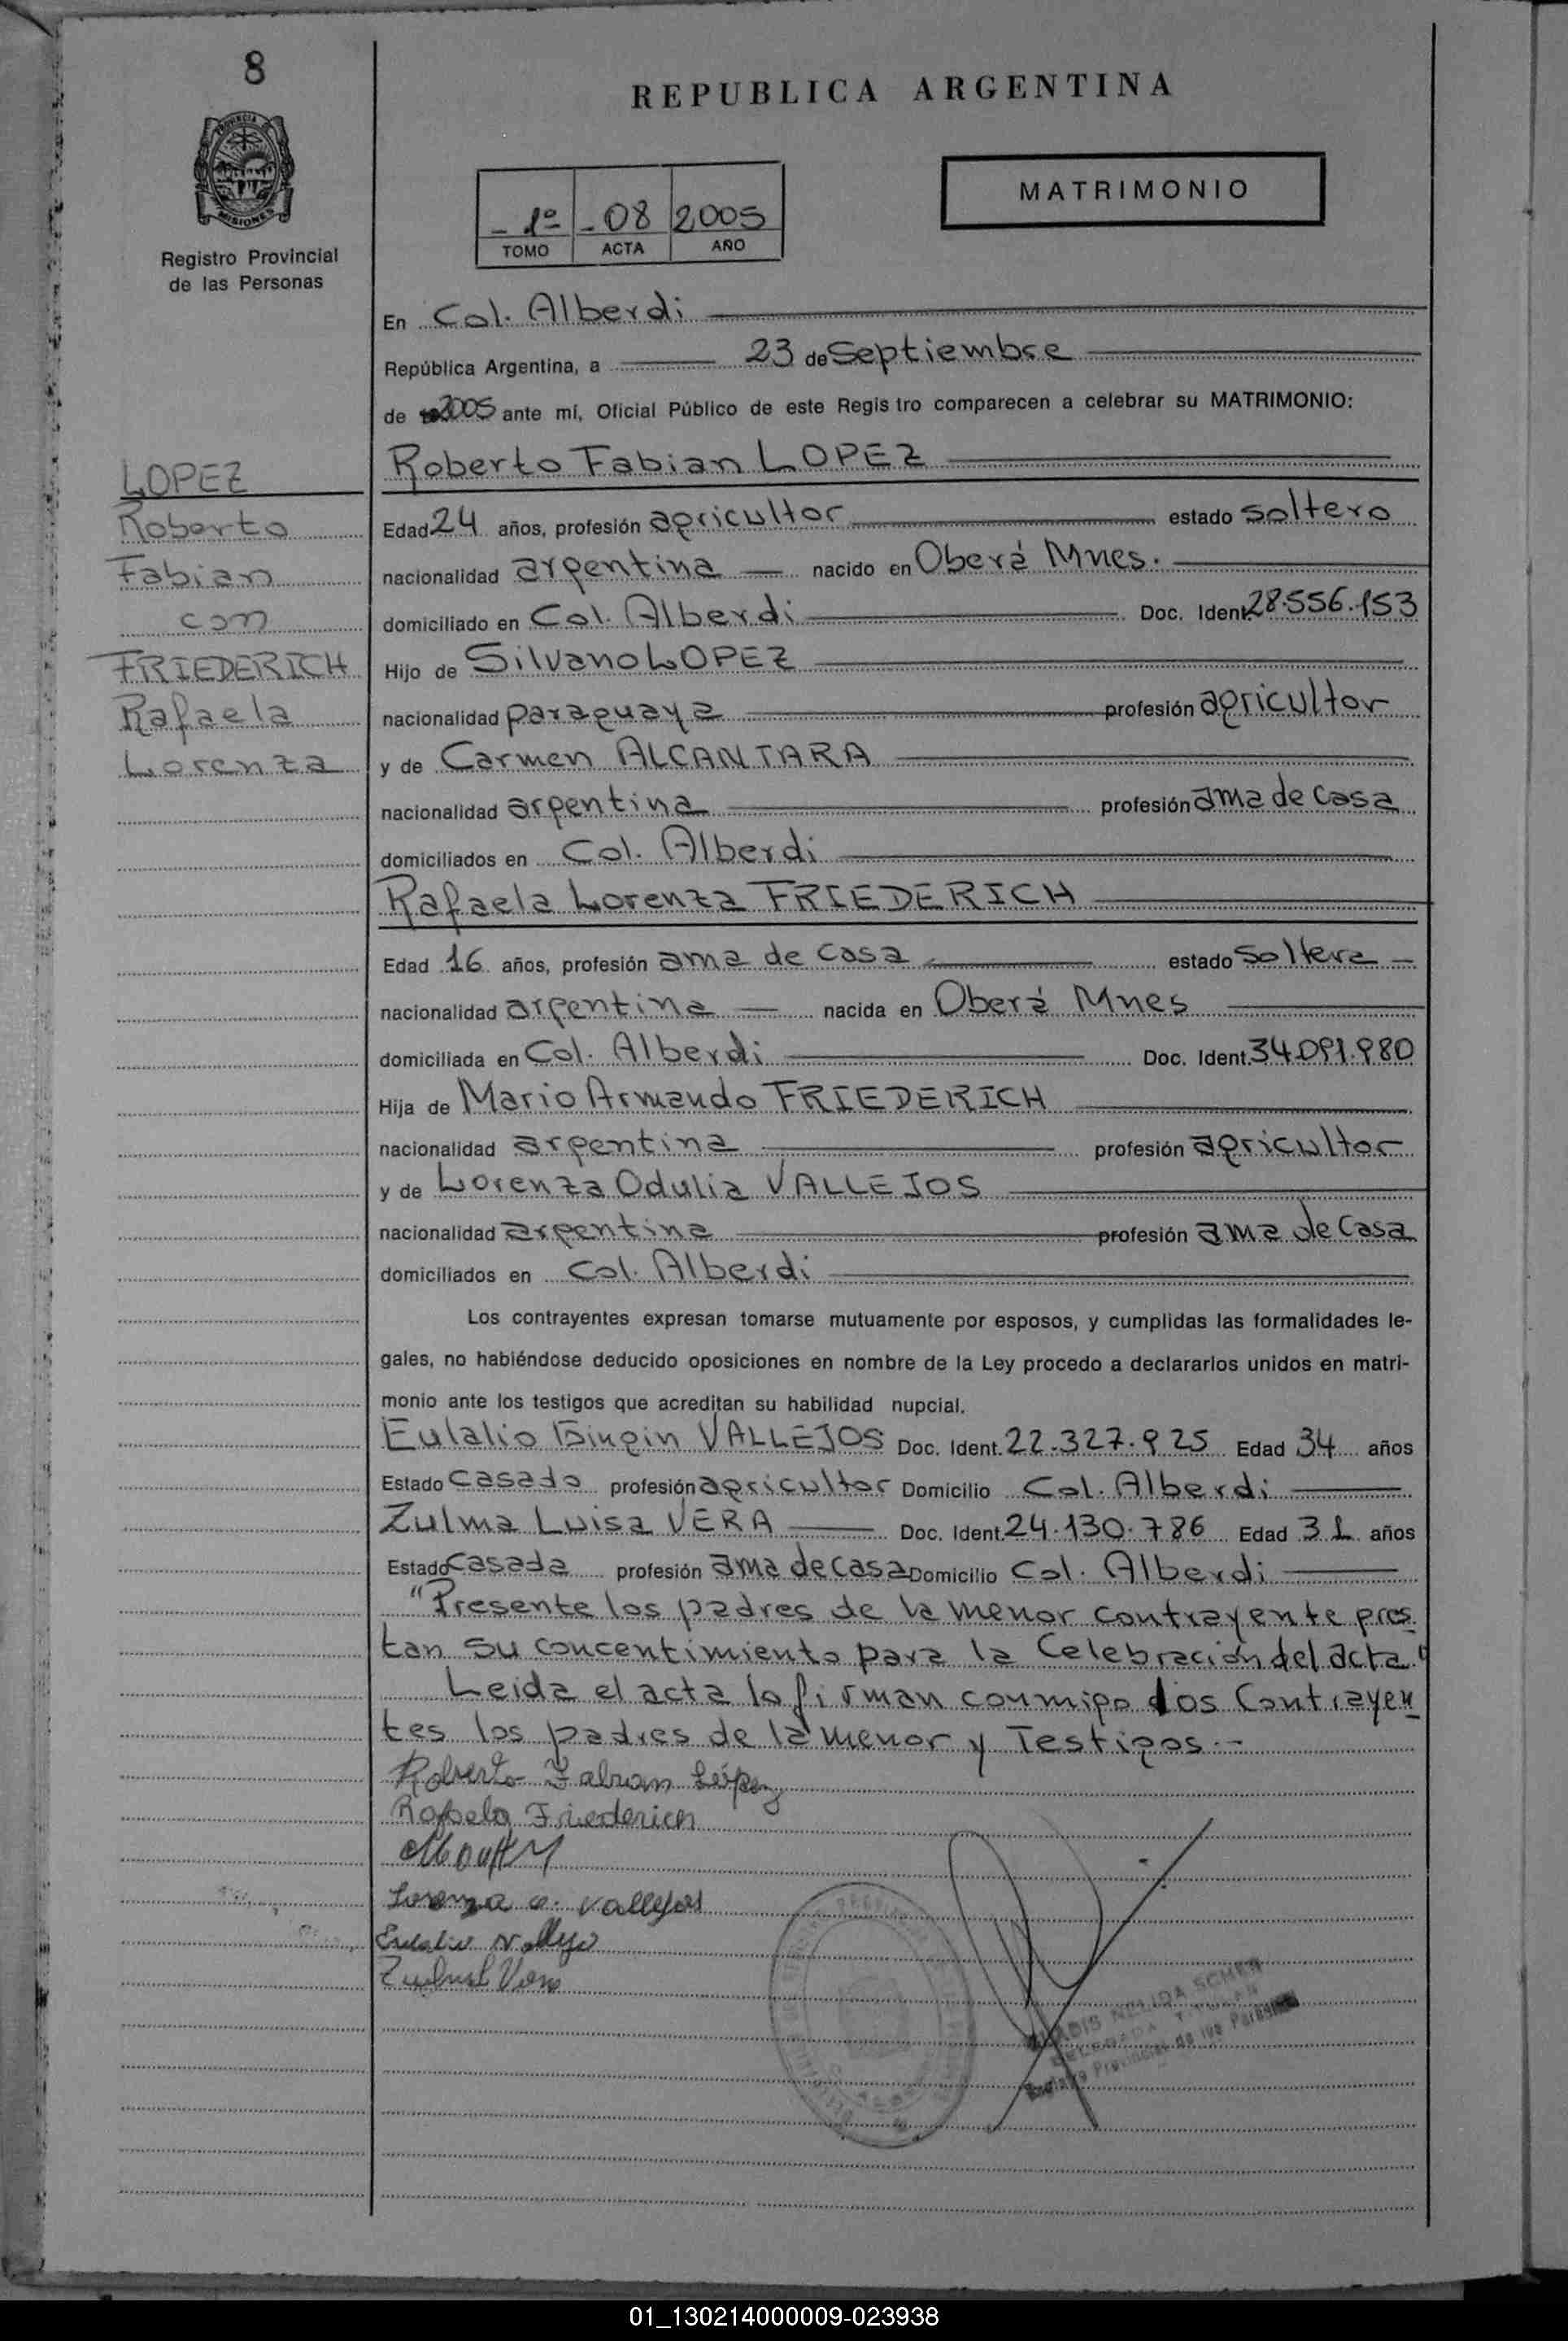 8
PROVINCIA
MISIONES
Registro Provincial
de las Personas
REPUBLICA ARGENTINA
MATRIMONIO
- 1º - 08 2005
TOMO ACTA AÑO
En Col. Alberdi
República Argentina, a 23 de Septiembre
de 2005 ante mí, Oficial Público de este Regis tro comparecen a celebrar su MATRIMONIO:
Roberto Fabian LOPEZ
LOPEZ
Roberto
Fabian
con
FRIEDERICH
Rafaela
Lorenza
Edad 24 años, profesión agricultor estado soltero
nacionalidad argentina nacido en Oberá Mnes.
domiciliado en Col. Alberdi Doc. Ident. 28.556.153
Hijo de Silvano LOPEZ
nacionalidad paraguaya profesión agricultor
y de Carmen ALCANTARA
nacionalidad argentina profesión ama de casa
domiciliados en Col. Alberdi
Rafaela Lorenza FRIEDERICH
Edad 16 años, profesión ama de casa estado soltera
nacionalidad argentina nacida en Oberá Mnes
domiciliada en Col. Alberdi Doc. Ident. 34.091.980
Hija de Mario Armando FRIEDERICH
nacionalidad argentina profesión agricultor
y de Lorenza Odulia VALLEJOS
nacionalidad argentina profesión ama de casa
domiciliados en Col. Alberdi
Los contrayentes expresan tomarse mutuamente por esposos, y cumplidas las formalidades le-
gales, no habiéndose deducido oposiciones en nombre de la Ley procedo a declararlos unidos en matri-
monio ante los testigos que acreditan su habilidad nupcial.
Eulalio VALLEJOS Doc. Ident. 22.327.925 Edad 34 años
Estado casado profesión agricultor Domicilio Col. Alberdi
Zulma Luisa VERA Doc. Ident. 24.130.786 Edad 31 años
Estado casada profesión ama de casa Domicilio Col. Alberdi
"Presente los padres de la menor contrayente pres
tan su concentimiento para la Celebración del acta"
Leida el acta la firman conmigo los Contrayen
tes los padres de la menor y Testigos.-
Roberto Fabian López
Rafaela Friederich
Lorenza O. Vallejos
Eulalio Vallejo
Zulma L Vera
NELIDA
Provincial de las Personas
01_130214000009-023938